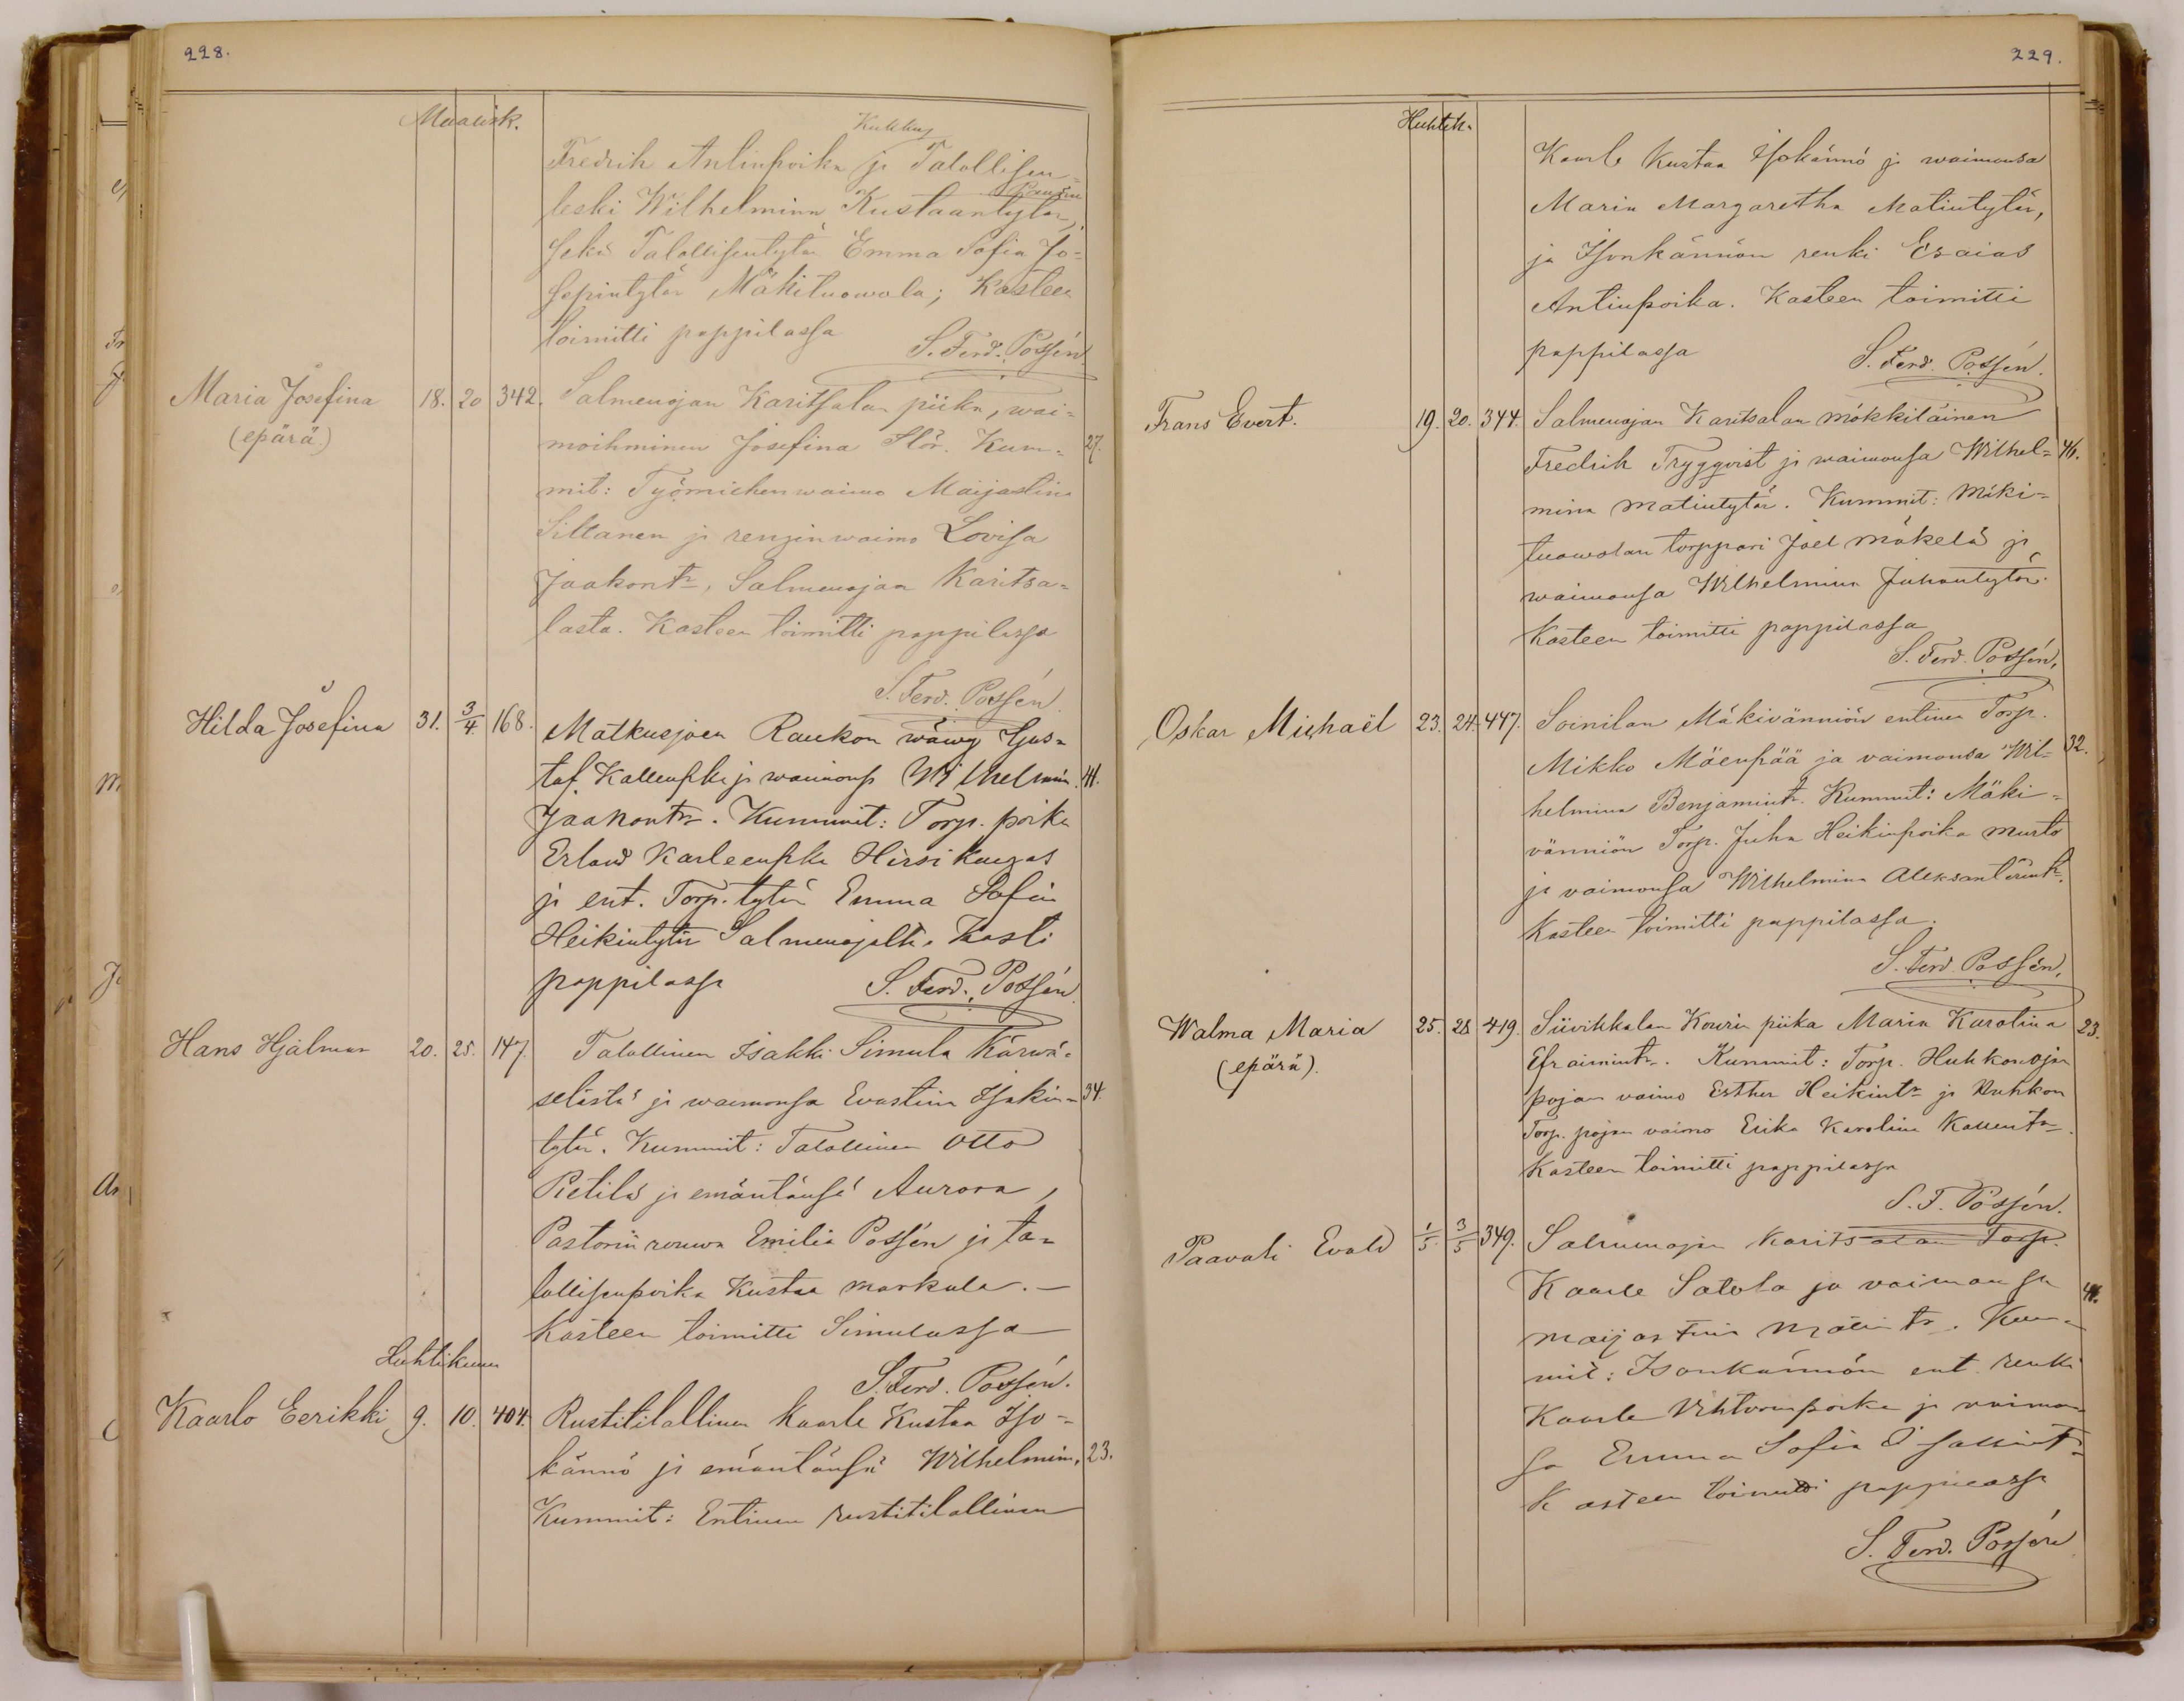 228.
Maalisk.
Kukkuj
Fredrik Antinpoika ja Talollisen=
leski Wilhelmiina Kustaantytär,
sekä Talollisentytär Emma Sofia Jo=
sepintytär Mäkituowola; Kasteen
toimitti pappilassa
S. Ferd. Possén
Maria Josefina 18. 20 342. Salmenojan Karitsalan piika, wai=
(epärä) moihminen Josefina Flör. Kum= 27.
mit: Työmiehen waimo Maijastiina
Siltanen ja rengin waimo Lovisa
Jaakontr, Salmenojan Karitsa=
lasta. Kasteen toimitti pappilassa
S. Ferd. Possén
Hilda Josefina 31. 3/4. 168. Matkusjoen Raukon wäwy Gus=
taf Kallenpka ja waimonsa Wilhelmin. 41.
Jaakontr. Kummit: Torp. poika
Erland Karleenpka Hirsikangas
ja ent. Torp. tytär Emma Sofia
Heikintytär Salmenojalta. Kasti
pappilassa S. Ferd. Possén
Hans Hjalmar 20. 25. 147. Talollinen Isakki Simula Kärwä=
selästä ja waimonsa Evastiina Isakin= 34.
tytär. Kummit: Talollinen Otto
Pietilä ja emäntänsä Aurora,
Pastorin rouwa Emilia Possén ja ta=
lollisenpoika Kustaa Markula. —
Kasteen toimitti Simulassa
S. Ferd. Possén.
Huhtikuu
Kaarlo Eerikki 9. 10. 404. Rustitilallinen Kaarle Kustaa Iso=
kännö ja emäntänsä Wilhelmiin. 23.
Kummit: Entinen rustitilallinen
229.
Huhtik.
Kaarle Kustaa Isokännö ja waimonsa
Maria Margaretha Matintytär,
ja Isonkännön renki Esaias
Antinpoika. Kasteen toimitti
pappilassa S. Ferd. Possén.
Frans Evert. 19. 20. 344. Salmenojan Karitsalan mökkiläinen
Fredrik Tryggvist ja waimonsa Wilhel= 46.
mina Matintytär. Kummit: Mäki=
tuowolan torppari Joel Mäkelä ja
waimonsa Wilhelmina Juhantytär.
Kasteen toimitti pappilassa
S. Ferd. Possén.
Oskar Michaël 23. 24. 447. Soinilan Mäkivänniön entinen Torp.
Mikko Mäenpää ja vaimonsa Wil= 32.
helmina Benjamintr. Kummit: Mäki=
vänniön Torp. Juha Heikinpoika Murto
ja vaimonsa Wilhelmina Aleksanterintr.
Kasteen toimitti pappilassa.
S. Ferd. Possén.
Walma Maria 25. 28 419. Siivikkalan Kourin piika Maria Karolina 23.
(epärä). Efraimintr. Kummit: Torp. Huhkonojan
pojan vaimo Esther Heikintr ja Huhkon
Torp. pojan vaimo Erika Karolina Kallentr.
Kasteen toimitti pappilassa
S. F. Possén.
Paavali Evald 1/5. 3/5 349. Salmenojan Karitsalan Torp.
Kaarle Satola ja vaimonsa 41.
Maijastiina Mäintr. Kum=
mit: Isonkännön ent. renki
Kaarle Vihtorinpoika ja vaimon=
sa Emma Sofia
Kasteen toimitti pappilassa
S. Ferd. Possén